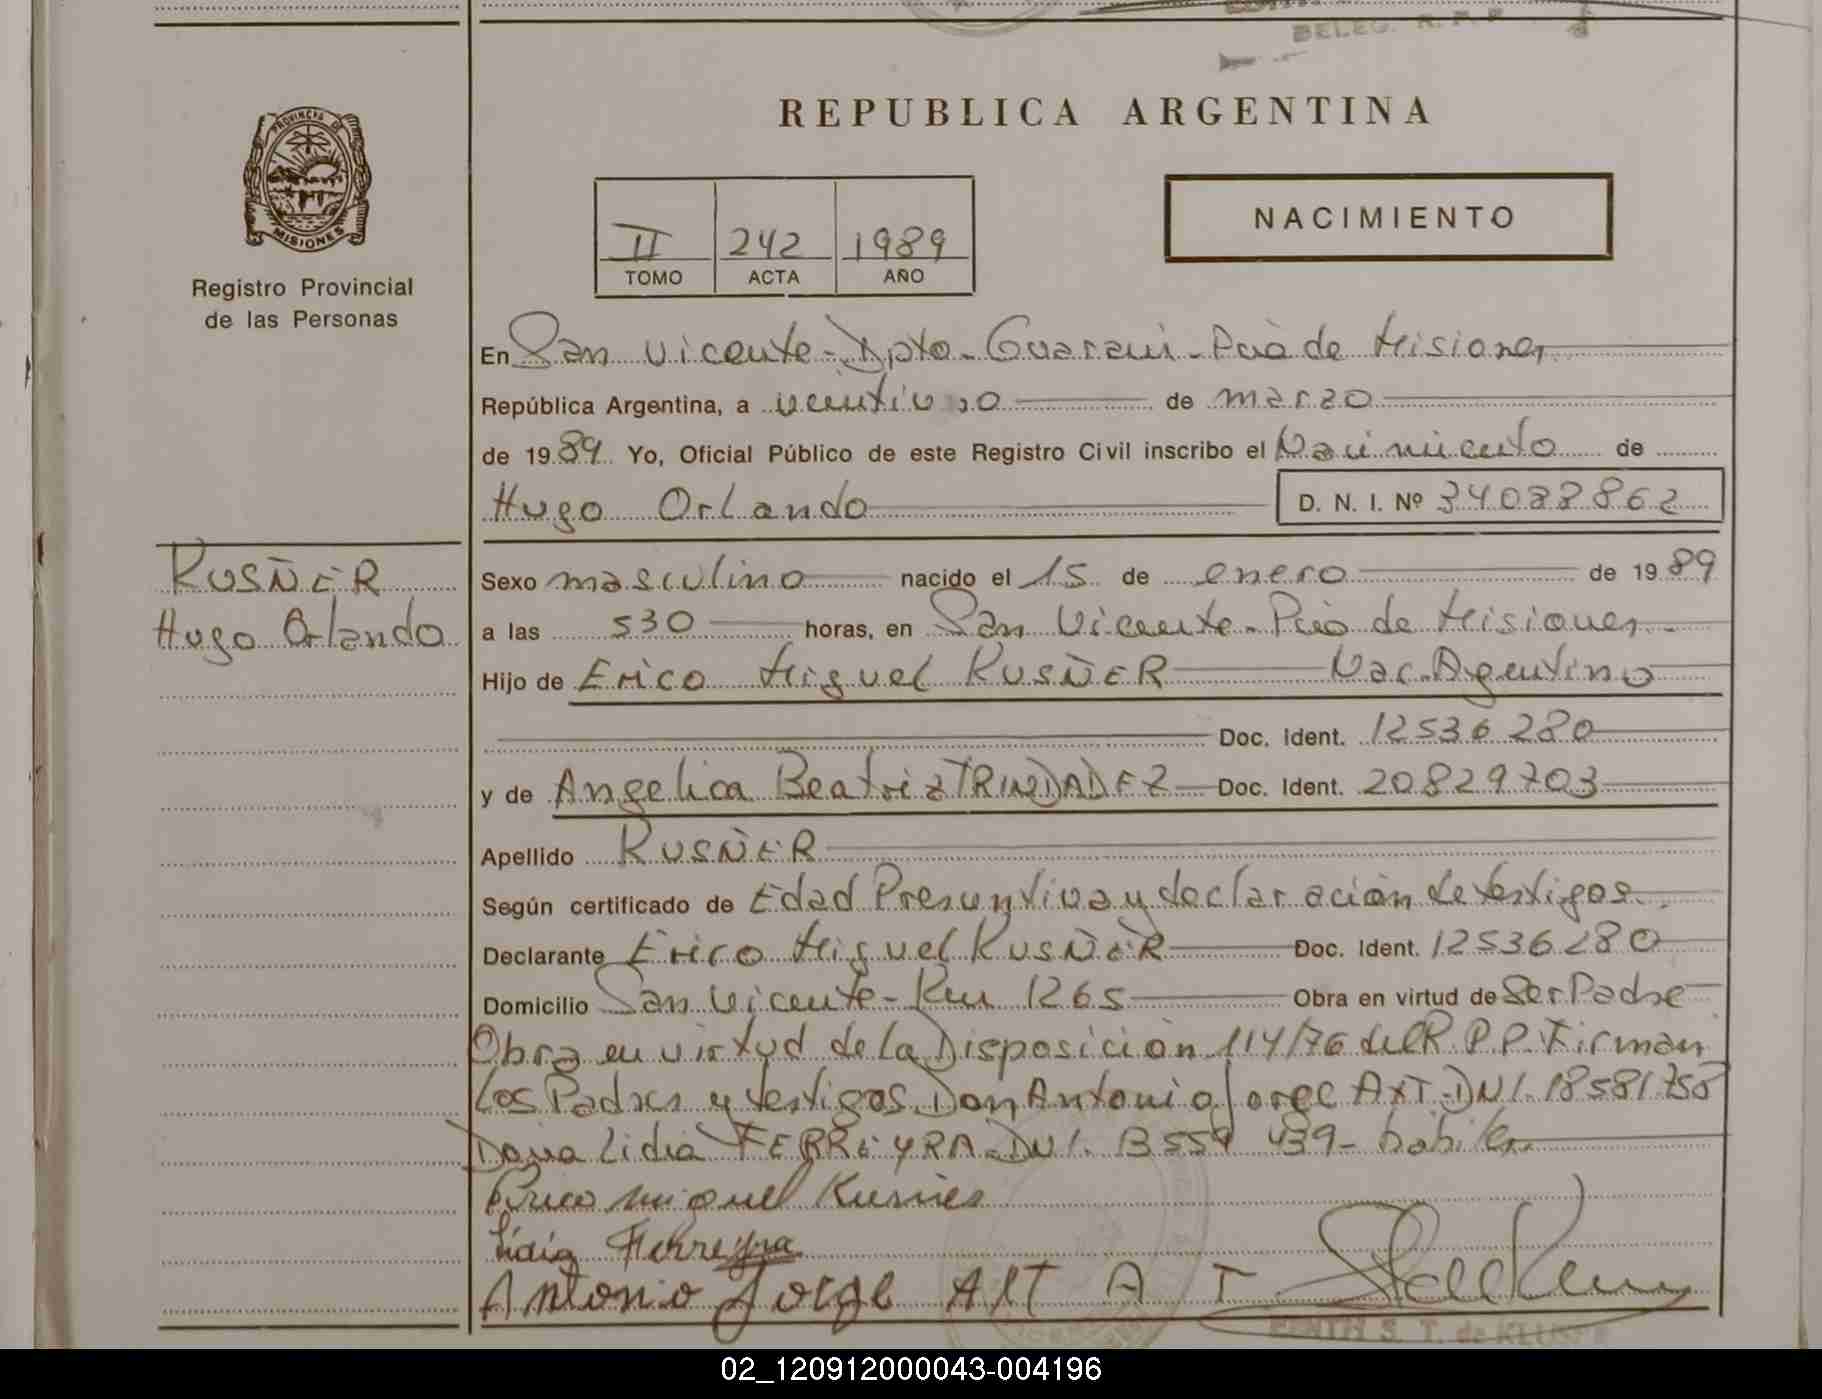 BELEG. R. P. P.
REPUBLICA ARGENTINA
PROVINCIA DE
MISIONES
Registro Provincial
de las Personas
II 242 1989
TOMO ACTA AÑO
NACIMIENTO
En San Vicente - Dpto - Guarani - Pcia de Misiones
República Argentina, a de marzo
de 1989 Yo, Oficial Público de este Registro Civil inscribo el Nacimiento de
Hugo Orlando D. N. I. Nº 34088862
KUSÑER
Hugo Orlando
Sexo masculino nacido el 15 de enero de 1989
a las 530 horas, en San Vicente - Pcia de Misiones -
Hijo de Erico Miguel KUSÑER Nac. Argentino
Doc. Ident. 12536280
y de Angelica Beatriz TRINDADEZ Doc. Ident. 20829703
Apellido KUSÑER
Según certificado de Edad Presuntiva y declaración de testigos.
Declarante Erico Miguel KUSÑER Doc. Ident. 12536280
Domicilio San Vicente - Km 1265 Obra en virtud de Ser Padre
Obra en virtud de la Disposición 114/76 del R.P.P. Firman
los Padres y testigos Don Antonio Jorge AXT - DNI. 18581758
Doña Lidia FERREYRA - DNI. 13559439 - habiles
Erico Miguel Kusñer
Lidia Ferreyra
Antonio Jorge AXT A T
S. T. de
02_120912000043-004196